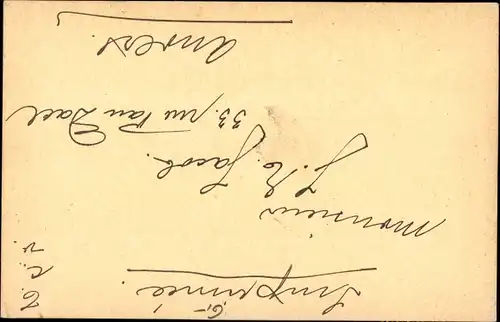 Imprimé.
Monsieur
J. E. Jacob.
33. rue Van Dael
Anvers.